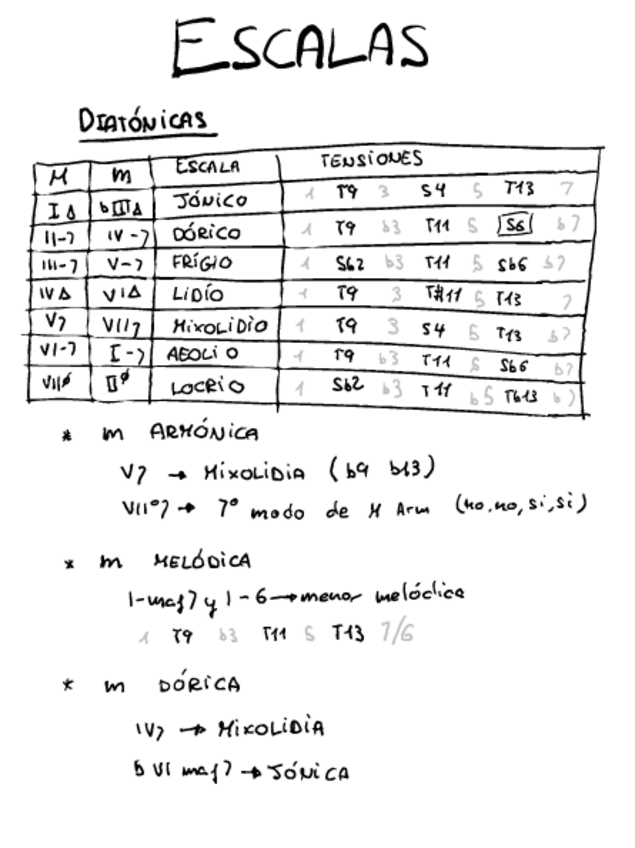 ESCALAS
DIATÓNICAS
M m ESCALA TENSIONES
I∆ bIII∆ JÓNICO 1 T9 3 S4 5 T13 7
II-7 IV-7 DÓRICO 1 T9 b3 T11 5 S6 b7
III-7 V-7 FRÍGIO 1 Sb2 b3 T11 5 Sb6 b7
IV∆ VI∆ LIDÍO 1 T9 3 T#11 5 T13 7
V7 VII7 MIXOLIDIO 1 T9 3 S4 5 T13 b7
VI-7 I-7 AEOLIO 1 T9 b3 T11 5 Sb6 b7
VIIø IIø LOCRIO 1 Sb2 b3 T11 b5 Tb13 b7
* m ARMÓNICA
V7 → MIXOLIDIA (b9 b13)
VII°7 → 7º modo de M Arm (no, no, si, si)
* m MELÓDICA
I-maj7 y I-6 → menor melódica
1 T9 b3 T11 5 T13 7/6
* m DÓRICA
IV7 → MIXOLIDIA
bVI maj7 → JÓNICA